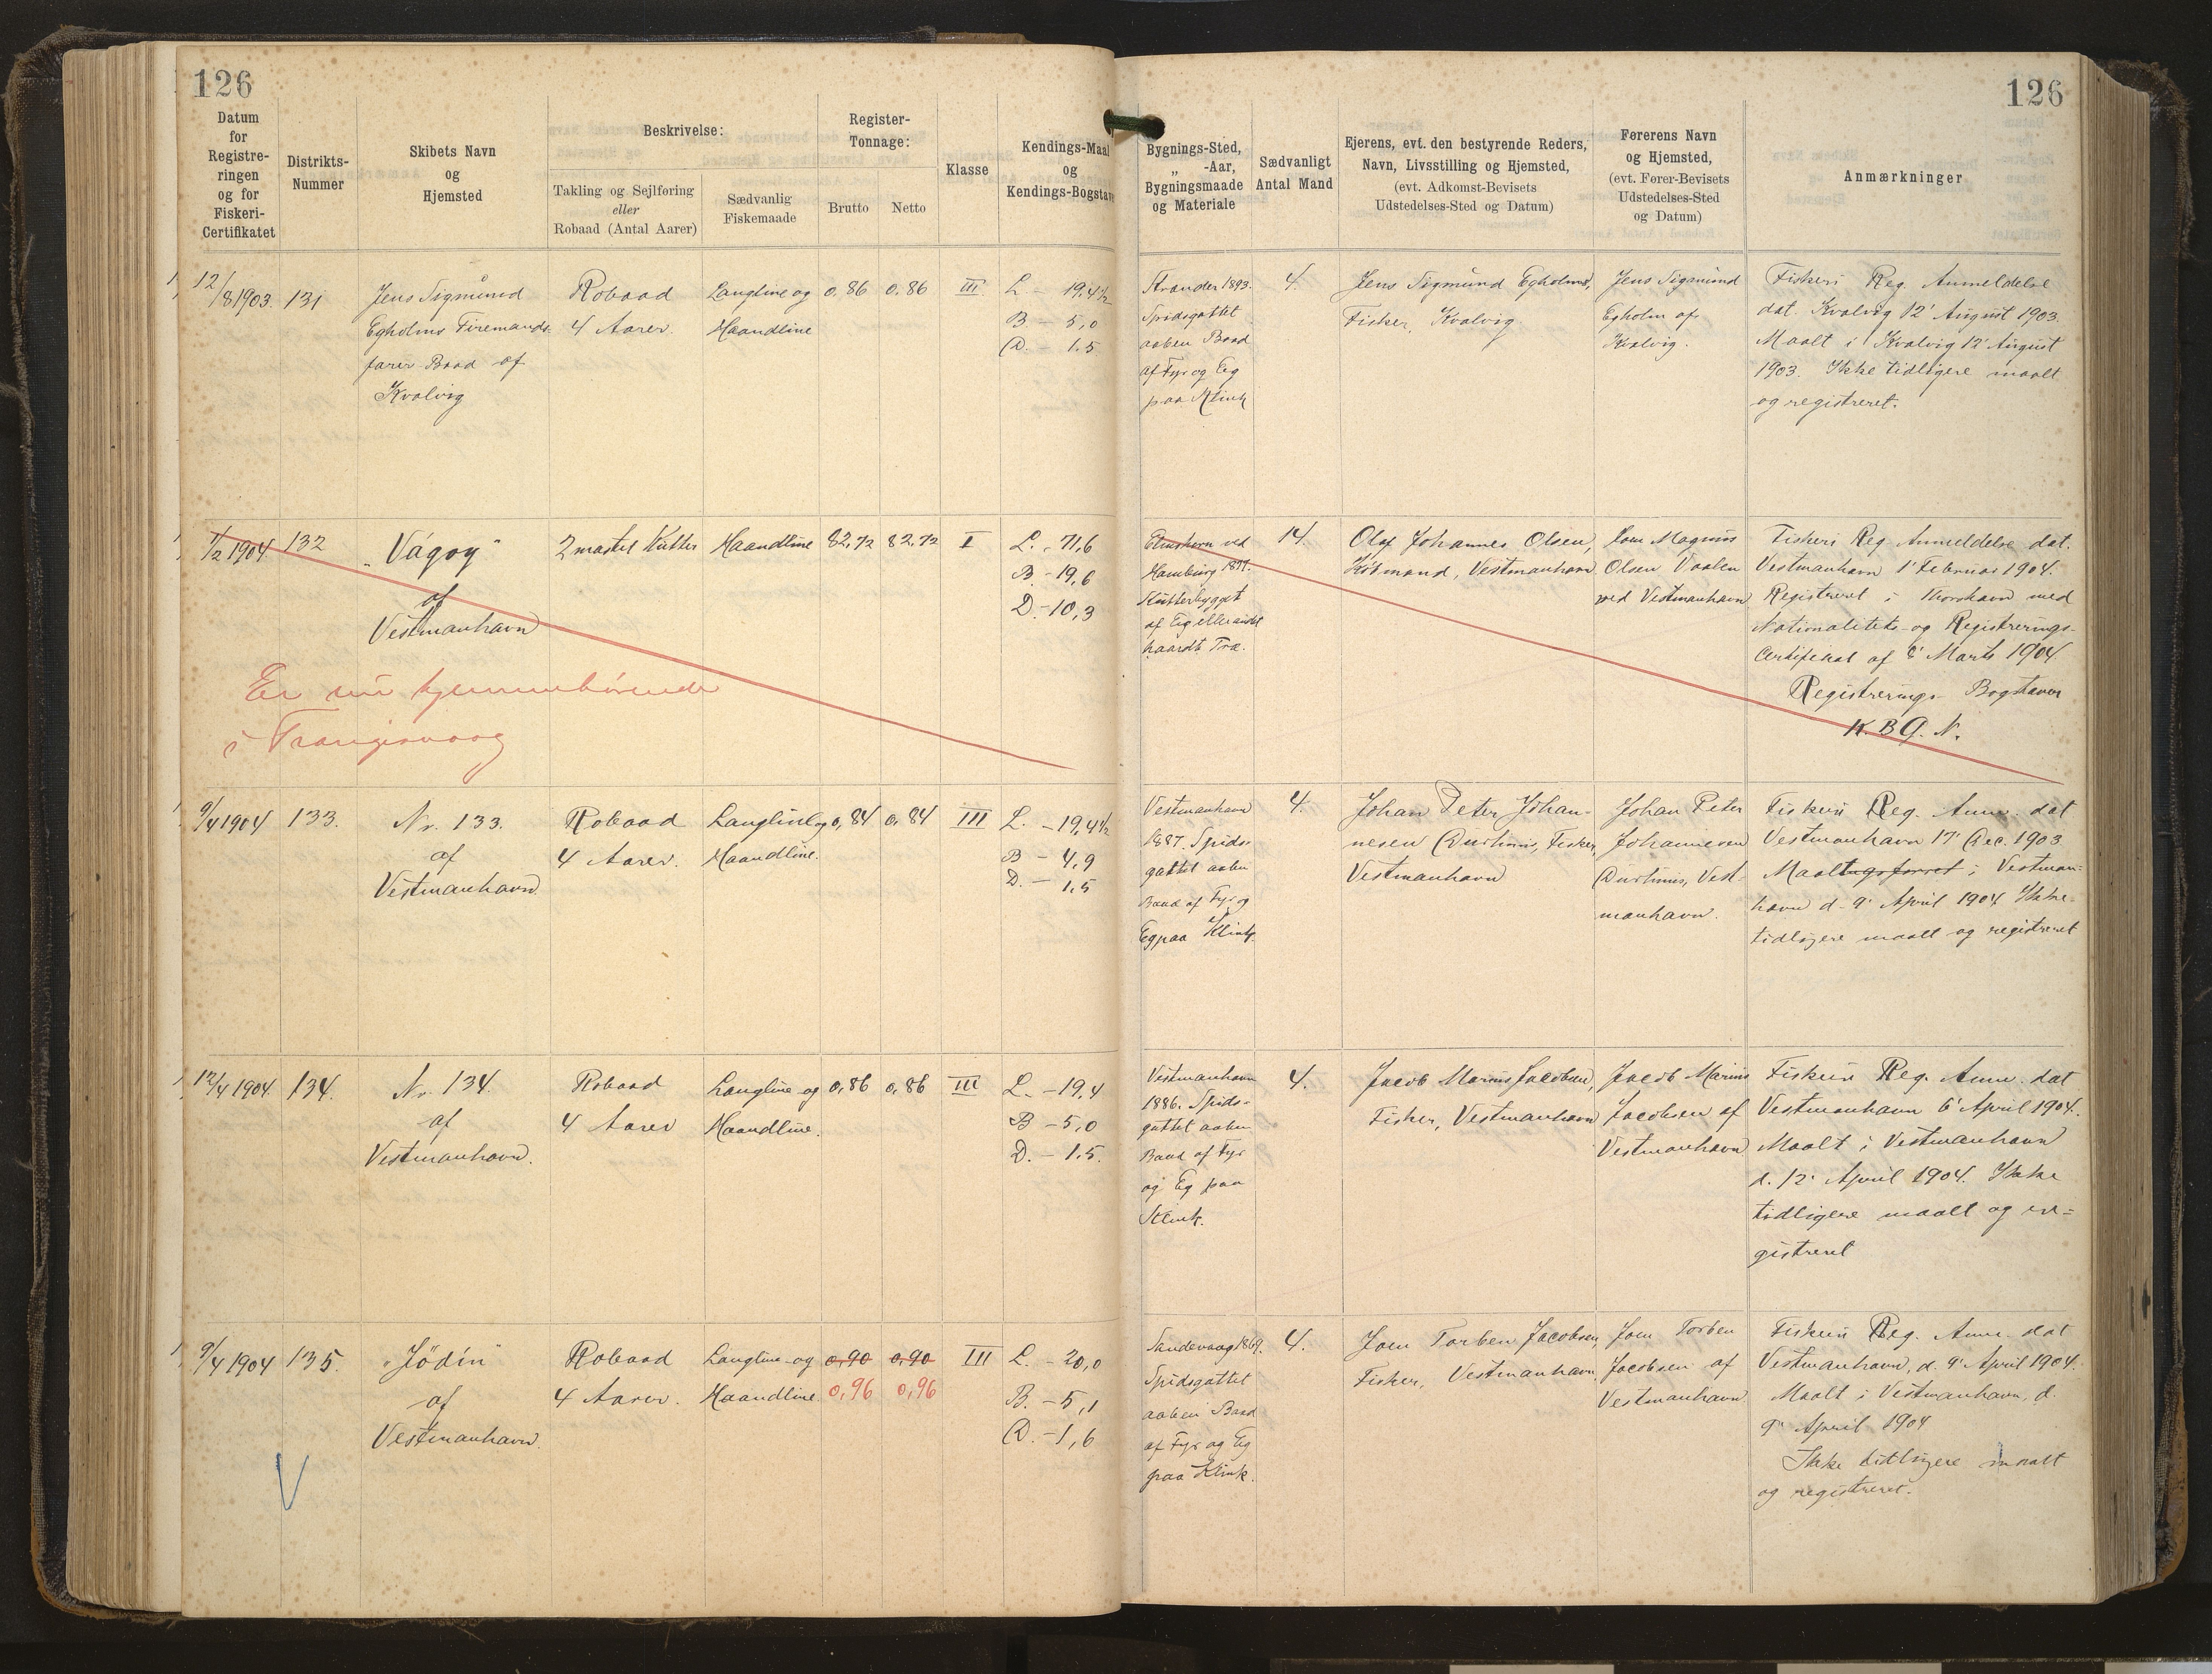 126
126
Datum
for
Registre-
ringen
og for
Fiskeri-
Certifikatet
Distrikts-
Nummer
Skibets Navn
og
Hjemsted
Beskrivelse:
Takling og Sejlføring
eller
Robaad (Antal Aarer)
Sædvanlig
Fiskemaade
Register-
Tonnage:
Brutto
Netto
Klasse
Kendings-Maal
og
Kendings-Bogstave
Bygnings-Sted,
„ -Aar,
Bygningsmaade
og Materiale
Sædvanligt
Antal Mand
Ejerens, evt. den bestyrende Reders,
Navn, Livsstilling og Hjemsted,
(evt. Adkomst-Bevisets
Udstedelses-Sted og Datum)
Førerens Navn
og Hjemsted,
(evt. Fører-Bevisets
Udstedelses-Sted
og Datum)
Anmærkninger
12/8 1903.
131
Jens Sigmund
Egholms Firemands-
farer Baad af
Kvalvig
Robaad
4 Aarer.
Langline og
Haandline
0,86
0,86
III
L - 19,4½
B - 5,0
D. - 1.5
Strander 1893.
Spidsgattet
aaben Baad
af Fyr og Eg
paa Klink
4.
Jens Sigmund Egholms,
Fisker, Kvalvig
Jens Sigmund
Egholm af
Kvalvig.
Fiskeri Reg. Anmeldelse
dat. Kvalvig 12' August 1903.
Maalt i Kvalvig 12' August
1903. Ikke tidligere maalt
og registreret.
1/2 1904.
132
"Vágoy"
af
Vestmanhavn
Er nu hjemmehørende
i Trangisvaag
2 mastet Kutter
Haandline
82,72
82,72
I
L. - 71,6
B. - 19,6
D - 10,3
Elmshorn ved
Hamburg 1877.
Kutterbygget
af Eg eller andet
haardt Træ.
14.
Olaf Johannes Olsen,
Købmand, Vestmanhavn
Magnus
Olsen Vaalen
ved Vestmanhavn
Fiskeri Reg Anmeldelse dat.
Vestmanhavn 1' Februar 1904.
Registreret i Thorshavn med
Nationalitets- og Registrerings-
Certifikat af 8' Marts 1904
Registrerings Bogstaver
N. B G. N.
9/4 1904
133.
Nr. 133.
af
Vestmanhavn.
Robaad
4 Aarer.
Langline og
Haandline.
0,84
0,84
III
L. - 19,4½
B - 4,9
D. - 1,5
Vestmanhavn
1887. Spids-
gattet aaben
Baad af Fyr og
Eg paa Klink.
4.
Johan Peter Johan-
nesen Durhuus, Fisker,
Vestmanhavn
Johan Peter
Johannesen
Durhuus, Vest-
manhavn.
Fiskeri Reg. Anm. dat
Vestmanhavn 17' Dec. 1903
Maalt i Vestman-
havn d. 9' April 1904 Ikke
tidligere maalt og registreret
12/4 1904.
134.
Nr. 134
af
Vestmanhavn.
Robaad
4 Aarer
Langline og
Haandline.
0,86
0,86
III
L. - 19,4
B - 5,0
D. - 1.5.
Vestmanhavn
1886. Spids-
gattet aaben
Baad af Fyr
og Eg paa
Klink.
4.
Jacob Marius Jacobsen,
Fisker, Vestmanhavn
Jacob Marius
Jacobsen af
Vestmanhavn
Fiskeri Reg. Anm. dat
Vestmanhavn 6' April 1904.
Maalt i Vestmanhavn
d. 12' April 1904. Ikke
tidligere maalt og re-
gistreret
9/4 1904
135.
"Jödin"
af
Vestmanhavn.
V
Robaad
4 Aarer.
Langline og
Haandline.
0,90
0,90
0,96
0,96
III
L. - 20,0
B. - 5,1
D. - 1,6
Sandevaag 1869.
Spidsgattet
aaben Baad
af Fyr og Eg
paa Klink.
4.
Joen Torben Jacobsen,
Fisker, Vestmanhavn,
Joen Torben
Jacobsen af
Vestmanhavn
Fiskeri Reg. Anm. dat
Vestmanhavn, d. 9' April 1904.
Maalt i Vestmanhavn, d.
9' April 1904
Ikke tidligere maalt
og registreret.